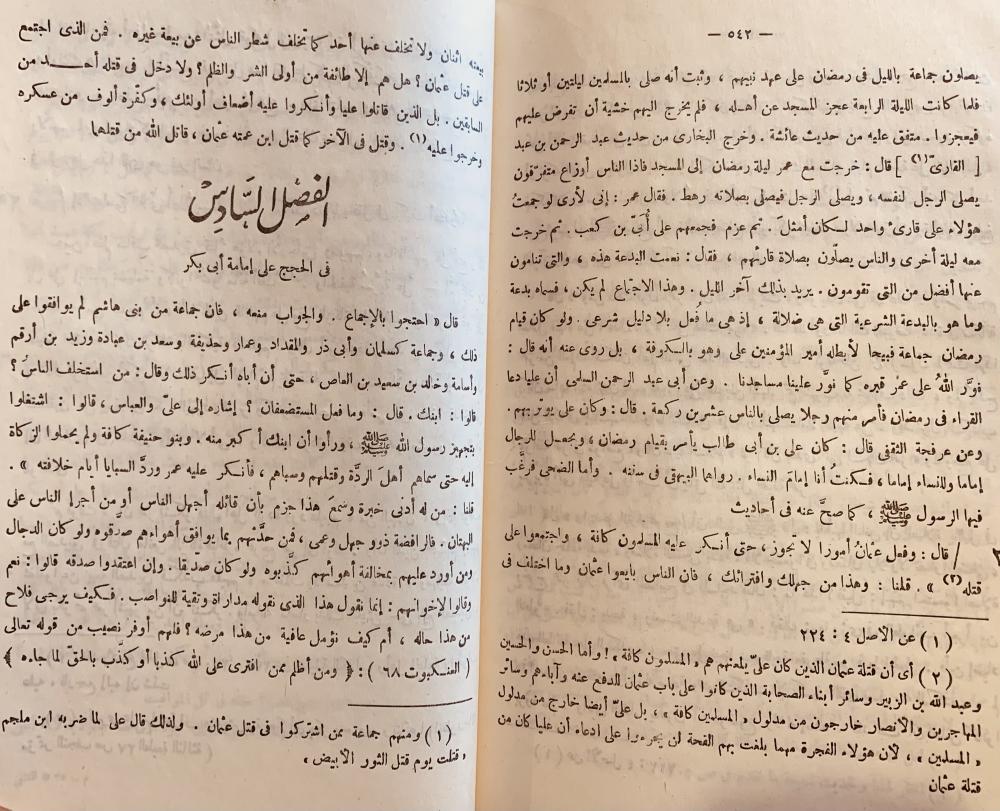 — ٥٤٢ —
يصلون جماعة بالليل فى رمضان على عهد نبيهم ، وثبت أنه صلى بالمسلمين ليلتين أو ثلاثا
فلما كانت الليلة الرابعة عجز المسجد عن أهله ، فلم يخرج اليهم خشية أن تفرض عليهم
فيعجزوا . متفق عليه من حديث عائشة . وخرج البخارى من حديث عبد الرحمن بن عبد
[ القارىّ (١) ] قال : خرجت مع عمر ليلة رمضان إلى المسجد فاذا الناس أوزاع متفرّقون
يصلى الرجل لنفسه ، ويصلى الرجل فيصلى بصلاته رهط . فقال عمر : إنى لأرى لو جمعتُ
هؤلاء على قارئ واحد لكان أمثلَ . ثم عزم فجمعهم على أُبَىّ بن كعب . ثم خرجت
معه ليلة أخرى والناس يصلّون بصلاة قارئهم ، فقال : نعمت البدعة هذه ، والتى تنامون
عنها أفضل من التى تقومون . يريد بذلك آخر الليل . وهذا الاجتماع لم يكن ، فسماه بدعة
وما هو بالبدعة الشرعية التى هى ضلالة ، إذ هى ما فُعل بلا دليل شرعى . ولو كان قيام
رمضان جماعة قبيحا لأبطله أمير المؤمنين على وهو بالكوفة ، بل روى عنه أنه قال :
نوَّر اللهُ على عمرَ قبره كما نوَّر علينا مساجدنا . وعن أبى عبد الرحمن السلمى أن عليا دعا
القراء فى رمضان فأمر منهم رجلا يصلى بالناس عشرين ركعة . قال : وكان على يوتر بهم .
وعن عرفجة الثقفى قال : كان على بن أبى طالب يأمر بقيام رمضان ، ويجعل للرجال
إماما وللنساء إماما ، فكنتُ أنا إمامَ النساء . رواهما البيهقى فى سننه . وأما الضحى فرغَّب
فيها الرسول ﷺ ، كما صحَّ عنه فى أحاديث
/ قال : وفعل عثمانُ أمورًا لا تجوز ، حتى أنكر عليه المسلمون كافة ، واجتمعوا على
قتله (٢) » . قلنا : وهذا من جهلك وافترائك ، فان الناس بايعوا عثمان وما اختلف فى
(١) عن الأصل ٤ : ٢٢٤
(٢) أى أن قتلة عثمان الذين كان علىّ يلعنهم هم « المسلمون كافة » ! وأما الحسن والحسين
وعبد الله بن الزبير وسائر أبناء الصحابة الذين كانوا على باب عثمان للدفع عنه وآباءهم وسائر
المهاجرين والأنصار خارجون من مدلول « المسلمين كافة » ، بل علىّ أيضا خارج من مدلول
« المسلمين » ، لأن هؤلاء الفجرة مهما بلغت بهم القحة لن يجرءوا على ادعاء أن عليا كان من
قتلة عثمان
بيعته اثنان ولا تخلف عنها أحد كما تخلف شطار الناس عن بيعة غيره . فمن الذى اجتمع
على قتل عثمان ؟ هل هم إلا طائفة من أولى الشر والظلم ؟ ولا دخل فى قتله أحد من
السابقين . بل الذين قاتلوا عليا وأنكروا عليه أضعاف أولئك ، وكفّره ألوف من عسكره
وخرجوا عليه (١) . وقتل فى الآخر كما قتل ابن عمته عثمان ، قاتل الله من قتلهما
الفصل السادس
فى الحجج على إمامة أبى بكر
قال « احتجوا بالإجماع . والجواب منعه ، فان جماعة من بنى هاشم لم يوافقوا على
ذلك ، وجماعة كسلمان وأبى ذر والمقداد وعمار وحذيفة وسعد بن عبادة وزيد بن أرقم
وأسامة وخالد بن سعيد بن العاص ، حتى أن أباه أنكر ذلك وقال : من استخلف الناسُ ؟
قالوا : ابنك . قال : وما فعل المستضعفان ؟ إشارة إلى علىّ والعباس ، قالوا : اشتغلوا
بتجهيز رسول الله ﷺ ، ورأوا أن ابنك أكبر منه . وبنو حنيفة كافة ولم يحملوا الزكاة
إليه حتى سماهم أهلَ الردَّة وقتلهم وسباهم ، فأنكر عليه عمر وردَّ السبايا أيام خلافته » .
قلنا : من له أدنى خبرة وسمعَ هذا جزم بأن قائله أجهل الناس أو من أجرإ الناس على
البهتان . فالرافضة ذوو جهل وعمى ، فمن حدَّثهم بما يوافق أهواءهم صدّقوه ولو كان الدجال
ومن أورد عليهم بمخالفة أهوائهم كذّبوه ولو كان صدّيقا . وإن اعتقدوا صدقه قالوا : نعم
وقالوا لإخوانهم : إنما نقول هذا الذى نقوله مداراة وتقية للنواصب . فكيف يرجى فلاح
من هذا حاله ، أم كيف نؤمل عافية من هذا مرضه ؟ فلهم أوفر نصيب من قوله تعالى
( العنكبوت ٦٨ ) : ﴿ ومن أظلم ممن افترى على الله كذبا أو كذب بالحق لما جاءه ﴾
(١) ومنهم جماعة ممن اشتركوا فى قتل عثمان . ولذلك قال على لما ضربه ابن ملجم
« قتلت يوم قتل الثور الأبيض »